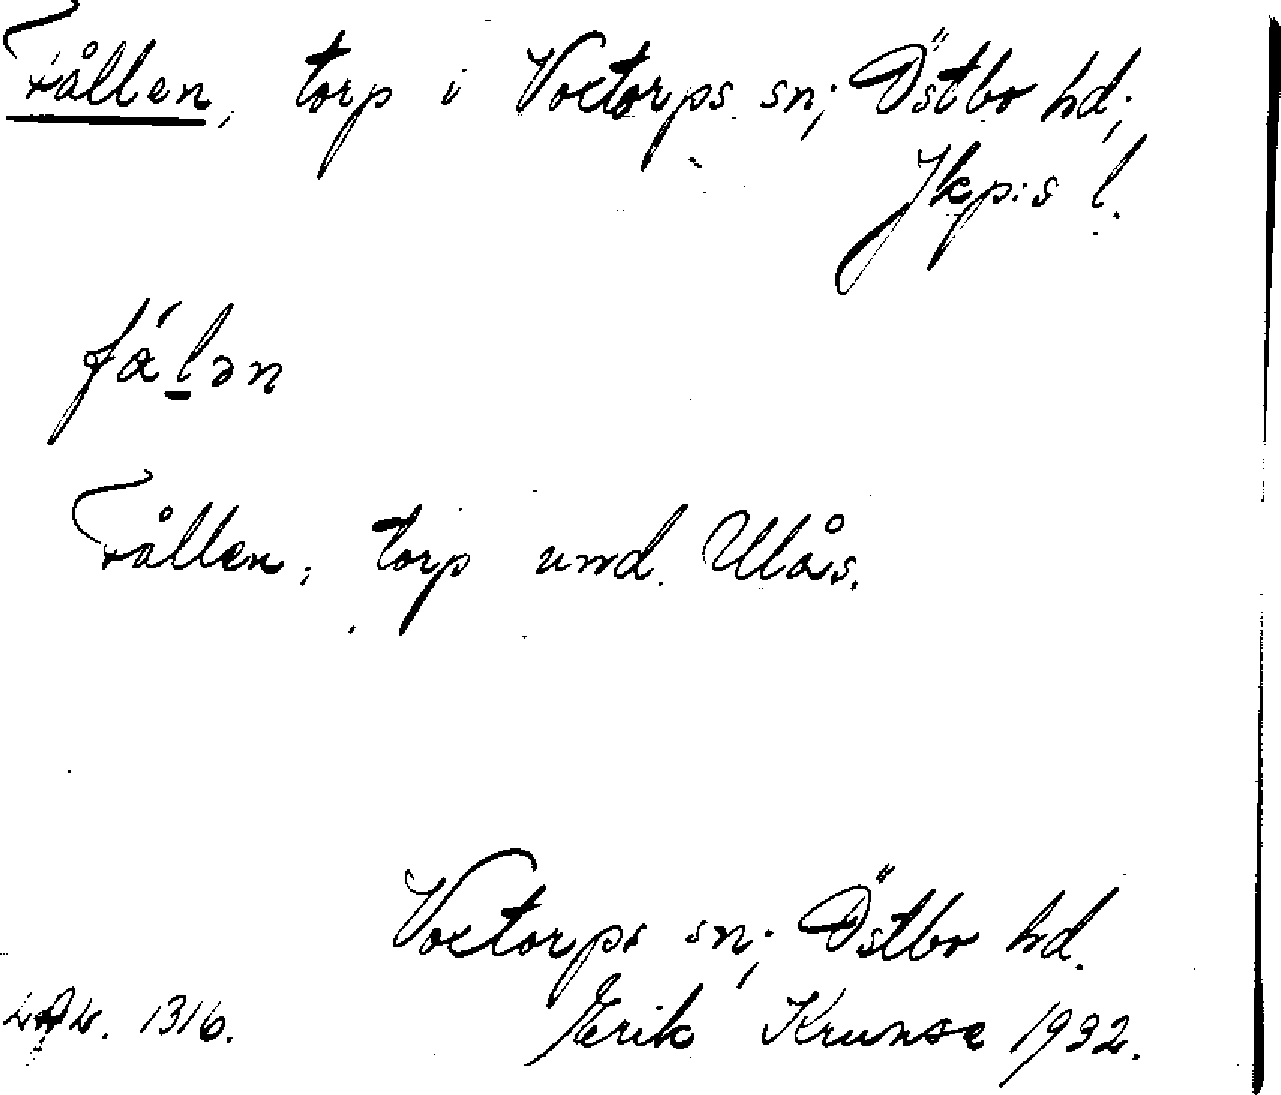 Fållen, torp i Voxtorps sn; Östbo hd;
Jkp:s l.
fá̀lən
Fållen, torp und. Ulås.
Voxtorps sn; Östbo hd.
1316. Erik Krunse 1932.